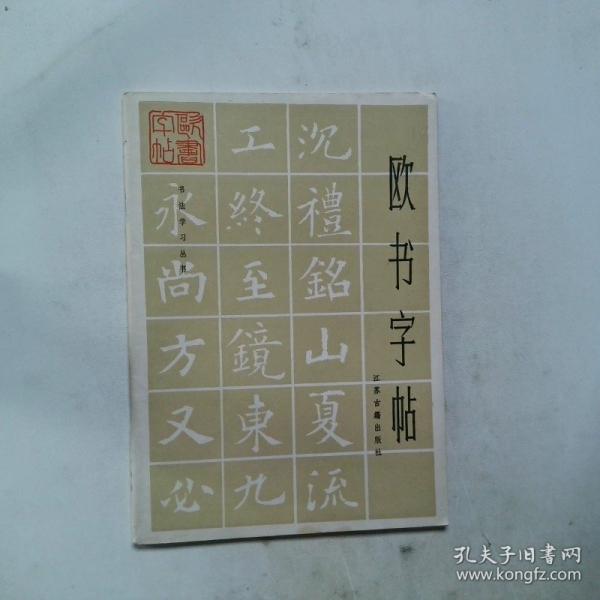 欧书字帖
江苏古籍出版社
沉禮銘山夏流
工終至鏡東九
永尚方又必
书法学习丛书
歐書字帖
孔夫子旧書网
www.kongfz.com